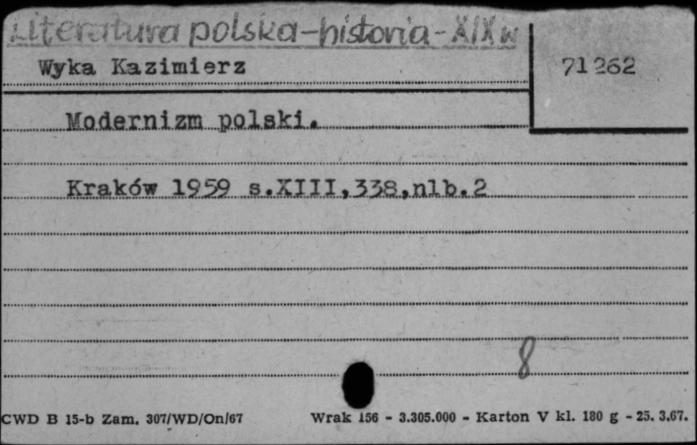 Literatura polska-historia-XIXw
Wyka Kazimierz
71262
Modernizm polski.
Kraków 1959 s.XIII,338,nlb.2
8
CWD B 15-b Zam. 307/WD/On/67 Wrak 156 - 3.305.000 - Karton V kl. 180 g - 25. 3.67.